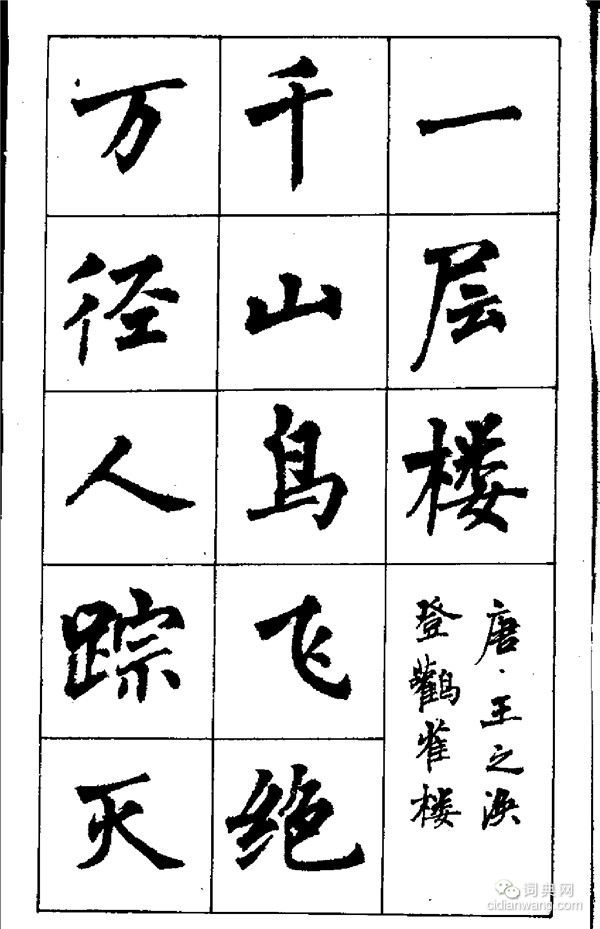 一层楼
唐·王之涣
登鹳雀楼
千山鸟飞绝
万径人踪灭
词典网
cidianwang.com